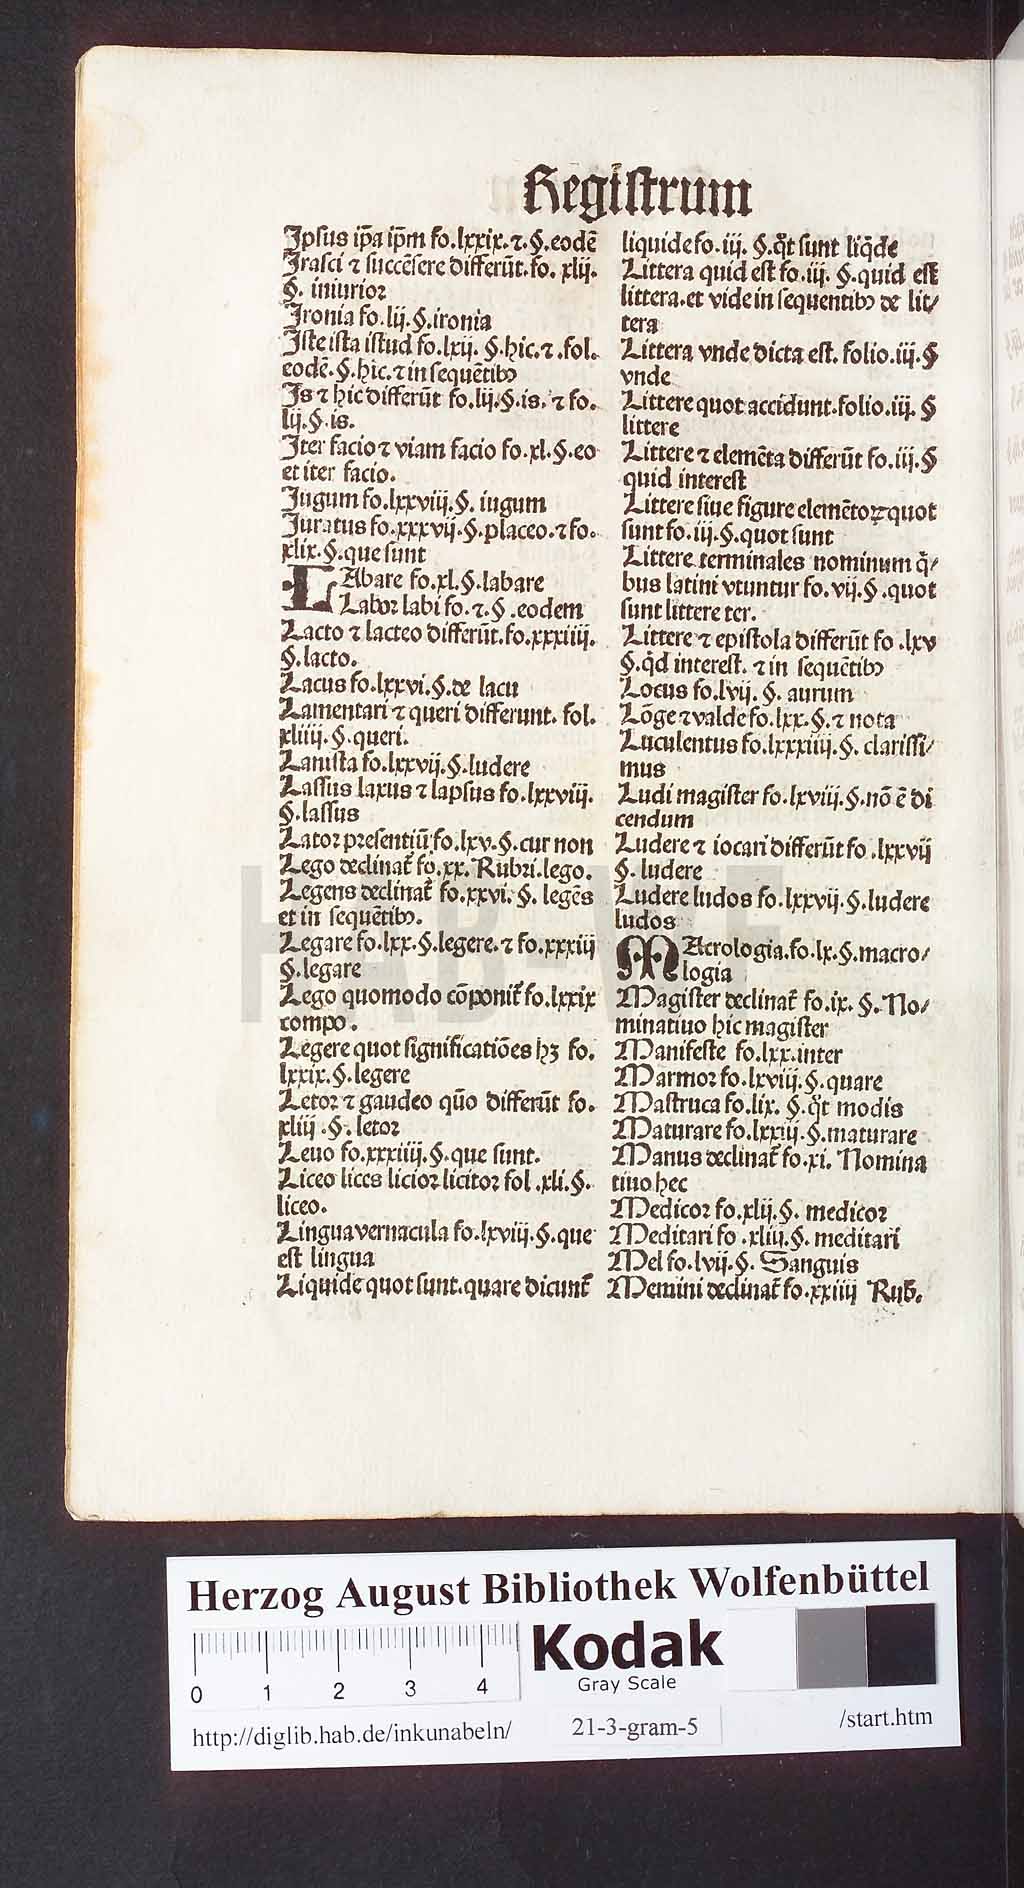 Registrum
Ipsus ip̃a ip̃m fo.lxxix.⁊.§.eodē
Irasci ⁊ succēsere differūt.fo. xlij.
§. iniurior
Ironia fo.lij.§.ironia
Iste ista istud fo.lxij. §.hic.⁊.fol.
eodē.§.hic.⁊ in sequētibꝫ
Is ⁊ hic differūt fo.lij.§.is. ⁊ fo.
lij.§.is.
Iter facio ⁊ viam facio fo.xl.§.eo
et iter facio.
Iugum fo.lxxviij.§. iugum
Iuratus fo.xxxvij.§.placeo.⁊ fo.
xlix.§.que sunt
LAbare fo.xl.§.labare
Labor labi fo.⁊.§.eodem
Lacto ⁊ lacteo differūt.fo.xxxiiij.
§.lacto.
Lacus fo.lxxvi.§.de lacu
Lamentari ⁊ queri differunt. fol.
xliiij.§.queri.
Lanista fo.lxxvij.§.ludere
Lassus laxus ⁊ lapsus fo.lxxviij.
§.lassus
Lator presentiū fo.lxv.§.cur non
Lego declinat᷑ fo.xx. Rubri.lego.
Legens declinat᷑ fo.xxvi.§. legēs
et in sequētibꝫ.
Legare fo.lxx.§.legere.⁊ fo.xxxiij
§.legare
Lego quomodo cōponit᷑ fo.lxxix
compo.
Legere quot significatiōes hꝫ fo.
lxxix.§.legere
Letor ⁊ gaudeo qūo differūt fo.
xliij.§. letor
Leuo fo.xxxiiij.§.que sunt.
Liceo lices licior licitor fol.xli.§.
liceo.
Lingua vernacula fo.lxviij.§.que
est lingua
Liquide quot sunt.quare dicunt᷑
liquide fo.iij. §.q̊t sunt liq̄de
Littera quid est fo.iij. §.quid est
littera.et vide in sequentibꝫ de lit/
tera
Littera vnde dicta est. folio.iij.§
vnde
Littere quot accidunt.folio.iij. §
littere
Littere ⁊ elemēta differūt fo.iij.§
quid interest
Littere siue figure elemētoꝝ quot
sunt fo.iij.§.quot sunt
Littere terminales nominum q̄/
bus latini vtuntur fo.vij.§.quot
sunt littere tcr.
Littere ⁊ epistola differūt fo.lxv
§.q̄d interest. ⁊ in sequētibꝫ
Locus fo.lvij. §. aurum
Lōge ⁊ valde fo.lxx.§.⁊ nota
Luculentus fo.lxxxiiij.§. clarissi/
mus
Ludi magister fo.lxviij.§.nō ē di
cendum
Ludere ⁊ iocari differūt fo.lxxvij
§. ludere
Ludere ludos fo.lxxvij.§.ludere
ludos
MAcrologia.fo.lx.§.macro/
logia
Magister declinat᷑ fo.ix. §. No/
minatiuo hic magister
Manifeste fo.lxx.inter
Marmor fo.lxviij.§.quare
Mastruca fo.lix. §.q̊t modis
Maturare fo.lxxiij.§.maturare
Manus declinat᷑ fo.xi. Nomina
tiuo hec
Medicor fo.xlij.§. medicor
Meditari fo.xliij.§. meditari
Mel fo.lvij.§. Sanguis
Memini declinat᷑ fo.xxiiij Rub̄.
HAB-WF
Herzog August Bibliothek Wolfenbüttel
0 1 2 3 4
Kodak
Gray Scale
http://diglib.hab.de/inkunabeln/ 21-3-gram-5 /start.htm